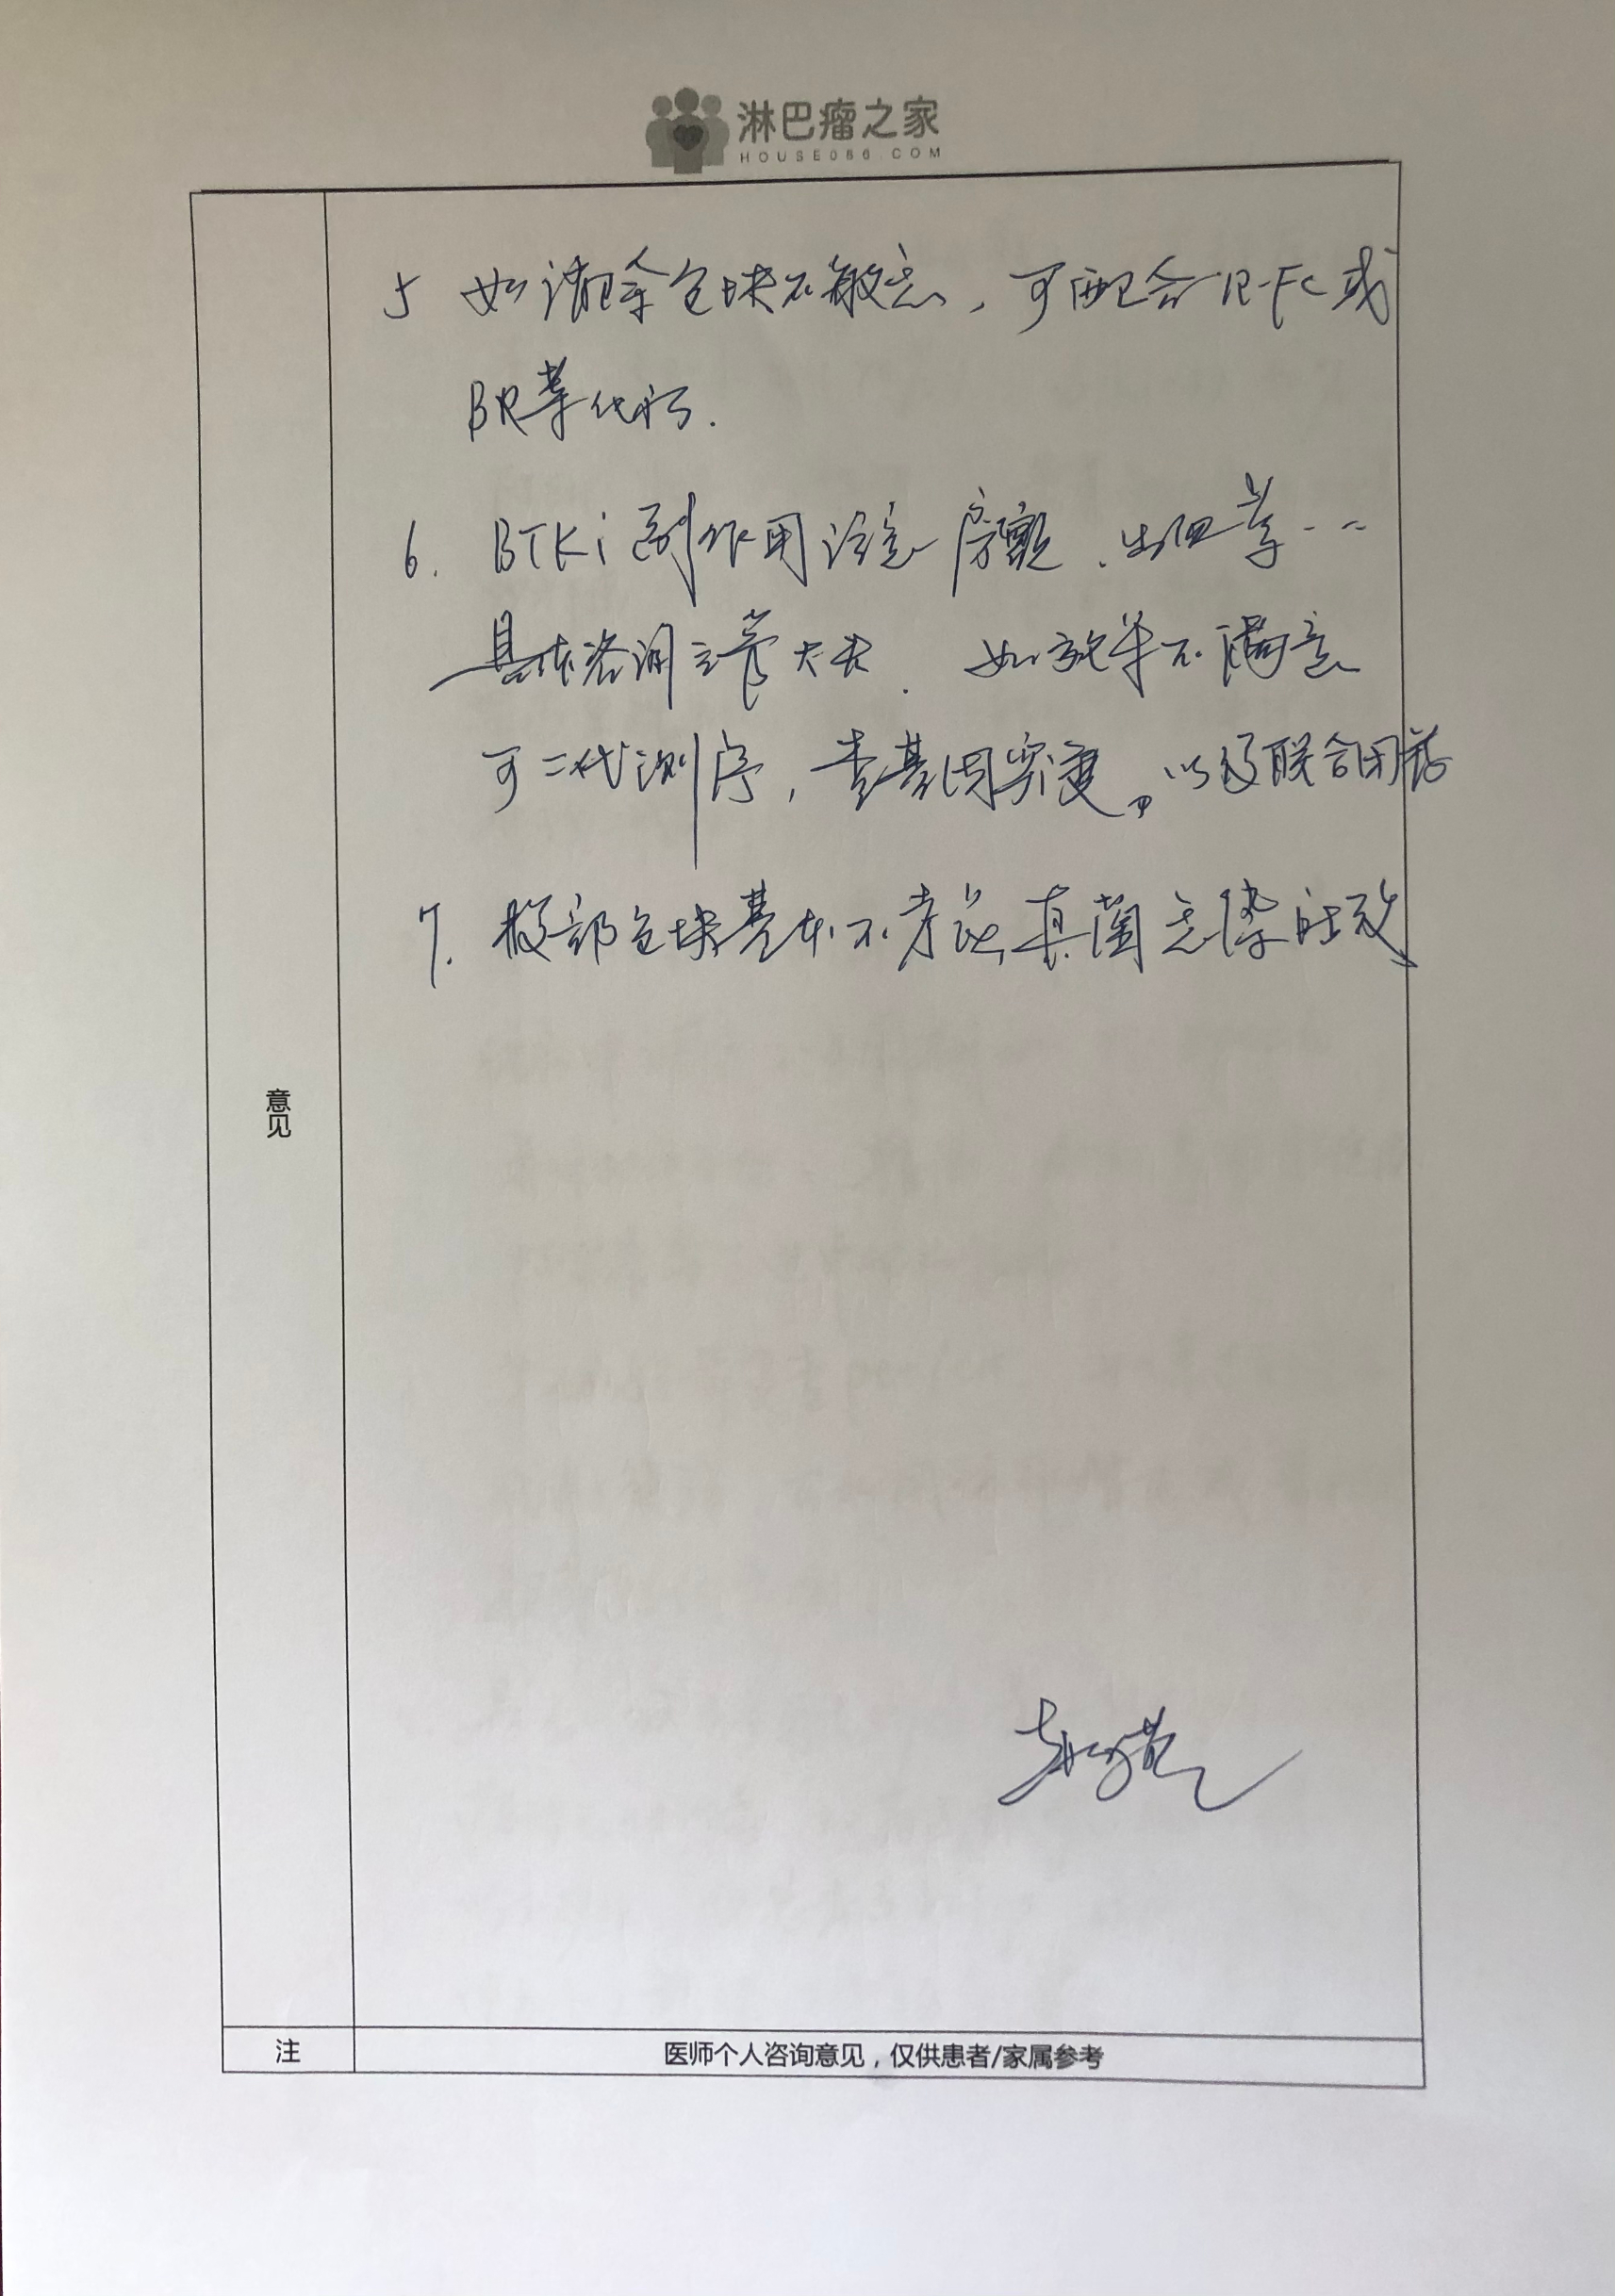 淋巴瘤之家
HOUSE086.COM
5 如清除包块不敏感，可配合R-FC或
BR等化疗.
6. BTKi副作用注意房颤、出血等...
具体咨询主管大夫. 如效果不满意
可二代测序，查基因突变。以及联合用药
7. 部包块基本不考虑真菌感染所致
意见
注
医师个人咨询意见，仅供患者/家属参考